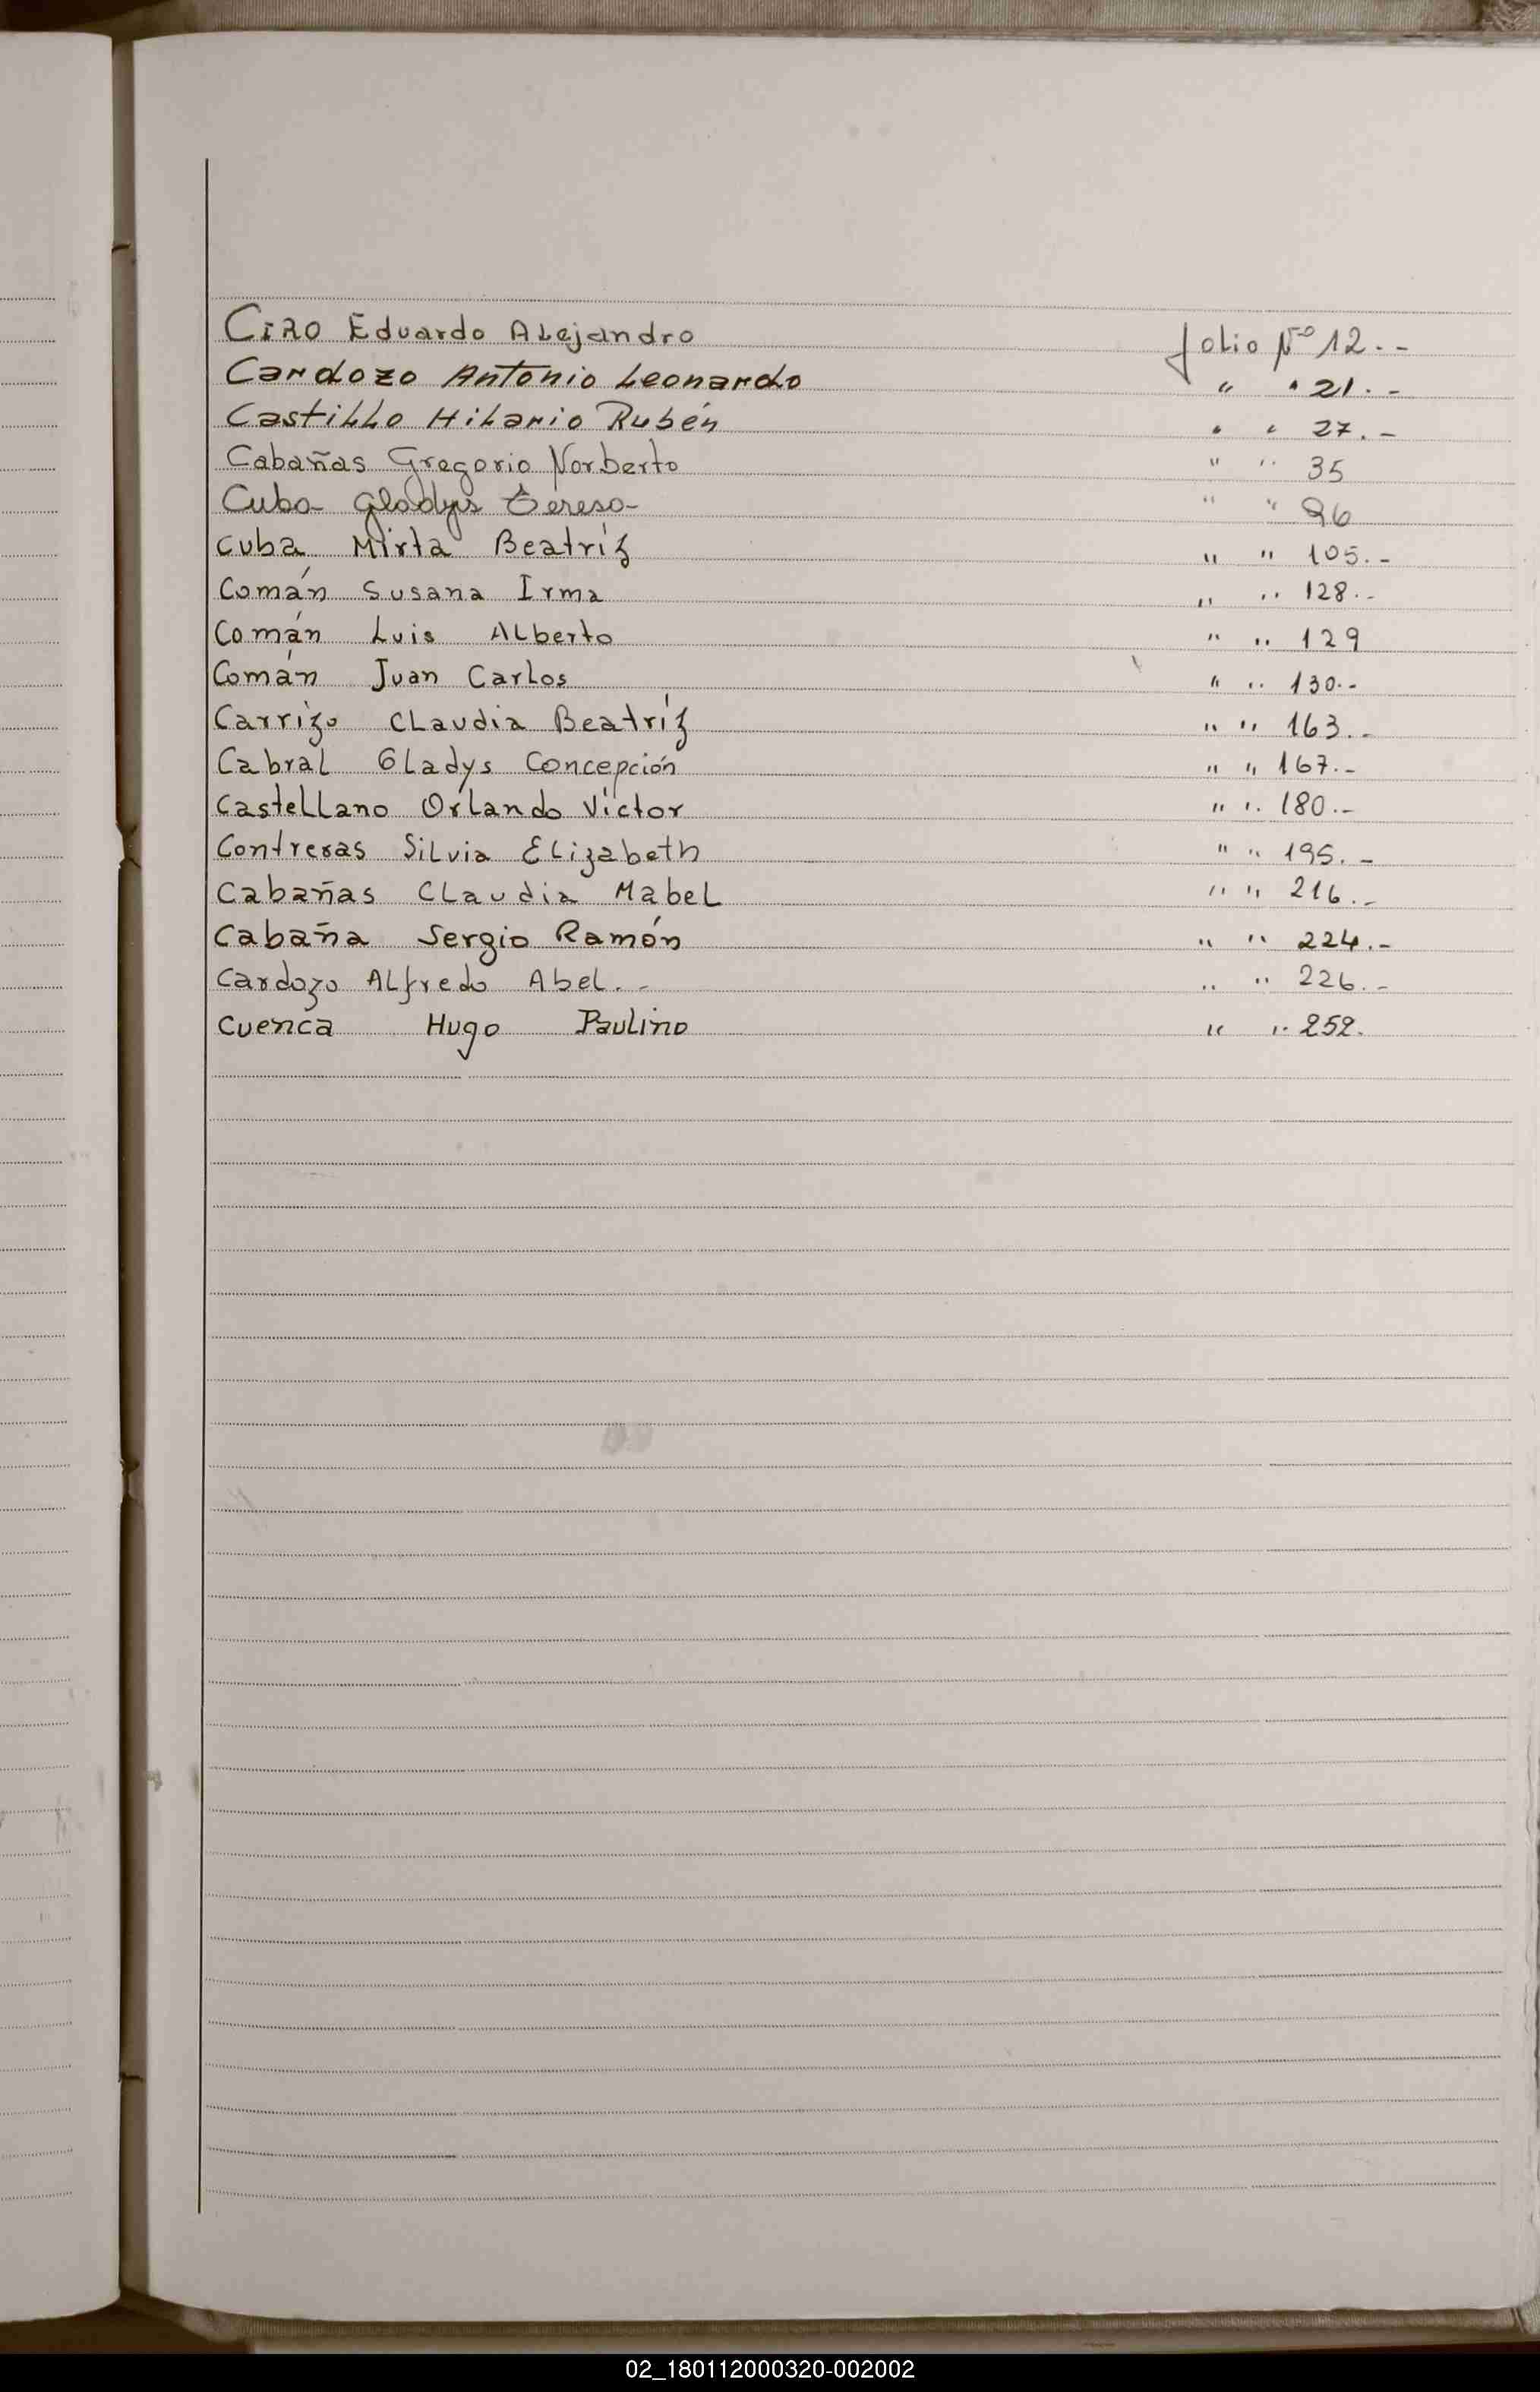 Ciro Eduardo Alejandro folio Nº 12.-
Cardozo Antonio Leonardo " " 21.-
Castillo Hilario Rubén " " 27.-
Cabañas Gregorio Norberto " " 35
Cuba Gladys Teresa " " 96
Cuba Mirta Beatríz " " 105.-
Comán Susana Irma " " 128.-
Comán Luis Alberto " " 129
Comán Juan Carlos " " 130.-
Carrizo Claudia Beatríz " " 163.-
Cabral Gladys Concepción " " 167.-
Castellano Orlando Victor " " 180.-
Contreras Silvia Elizabeth " " 195.-
Cabañas Claudia Mabel " " 216.-
Cabaña Sergio Ramón " " 224.-
Cardozo Alfredo Abel.- " " 226.-
Cuenca Hugo Paulino " " 252.
02_180112000320-002002